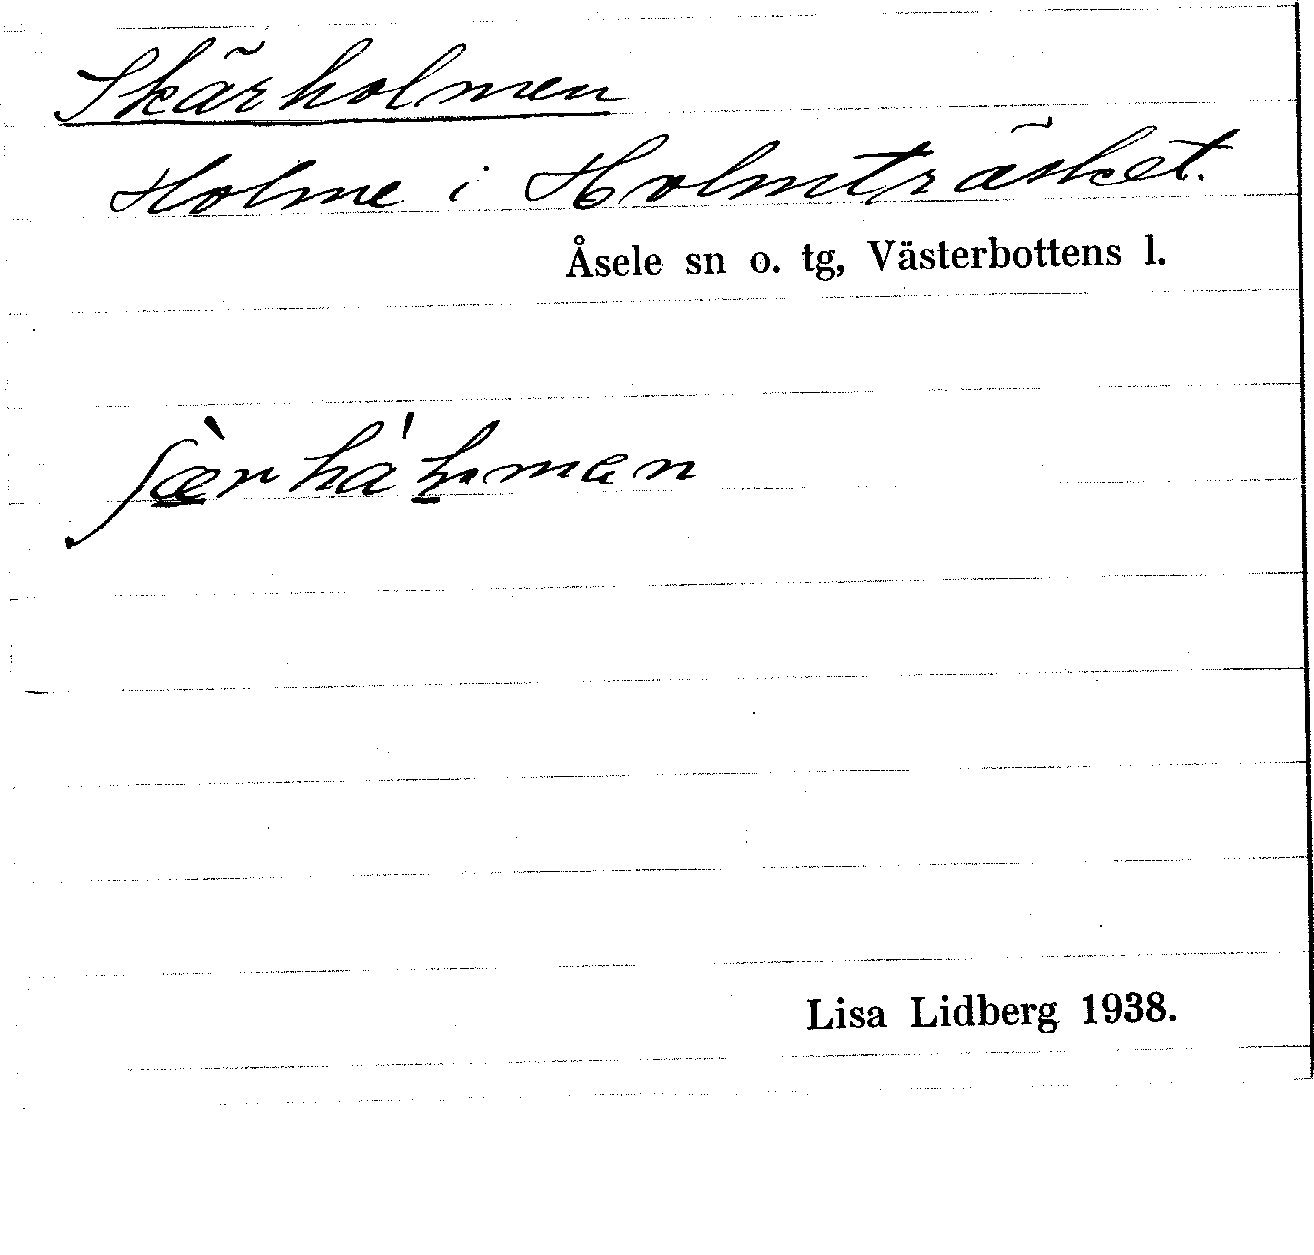 Skärholmen
Holme i Holmträsket.
Åsele sn o. tg, Västerbottens l.
Lisa Lidberg 1938.